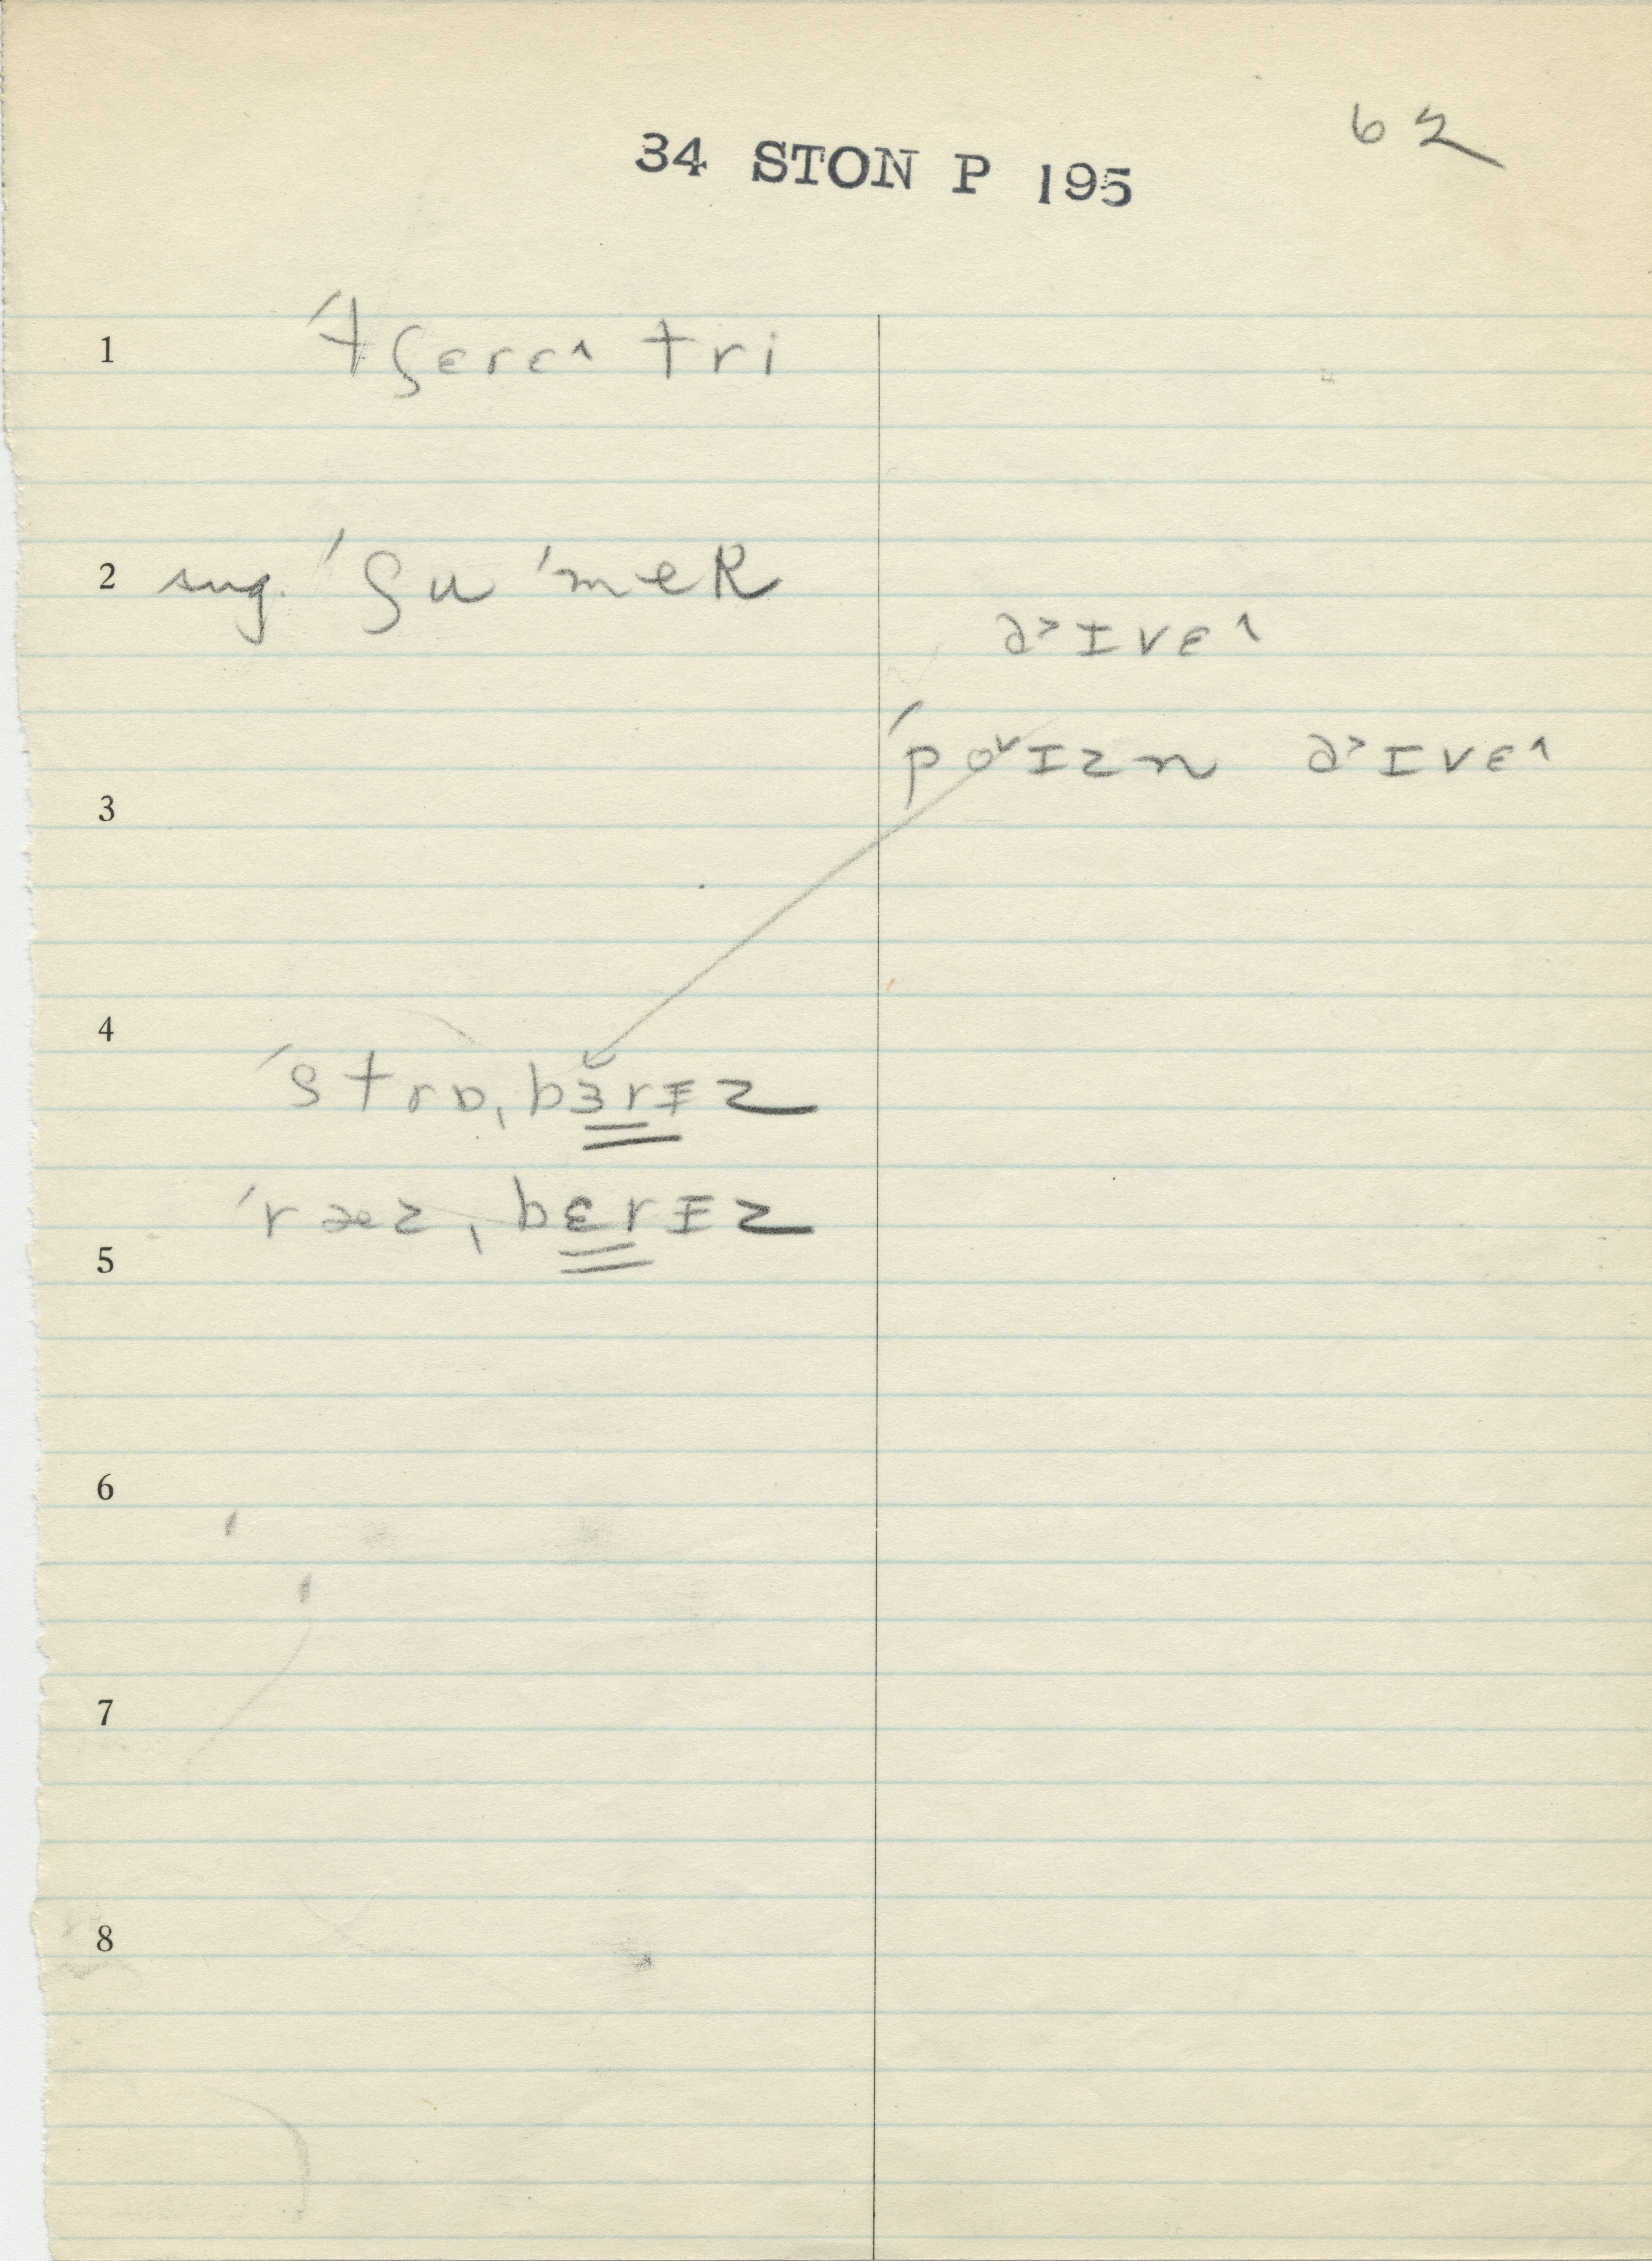 62
34 STON P 195
1 ˈtʃɛrɛ˄ tri
2 sug. ˈʃu ˈmeR
ə˃ɪvɛ˄
ˈpo˅ɪzn ə˃ɪvɛ˄
3
4
ˈstrɒˌbɜrɪz
ˈræzˌbɛrɪz
5
6
7
8